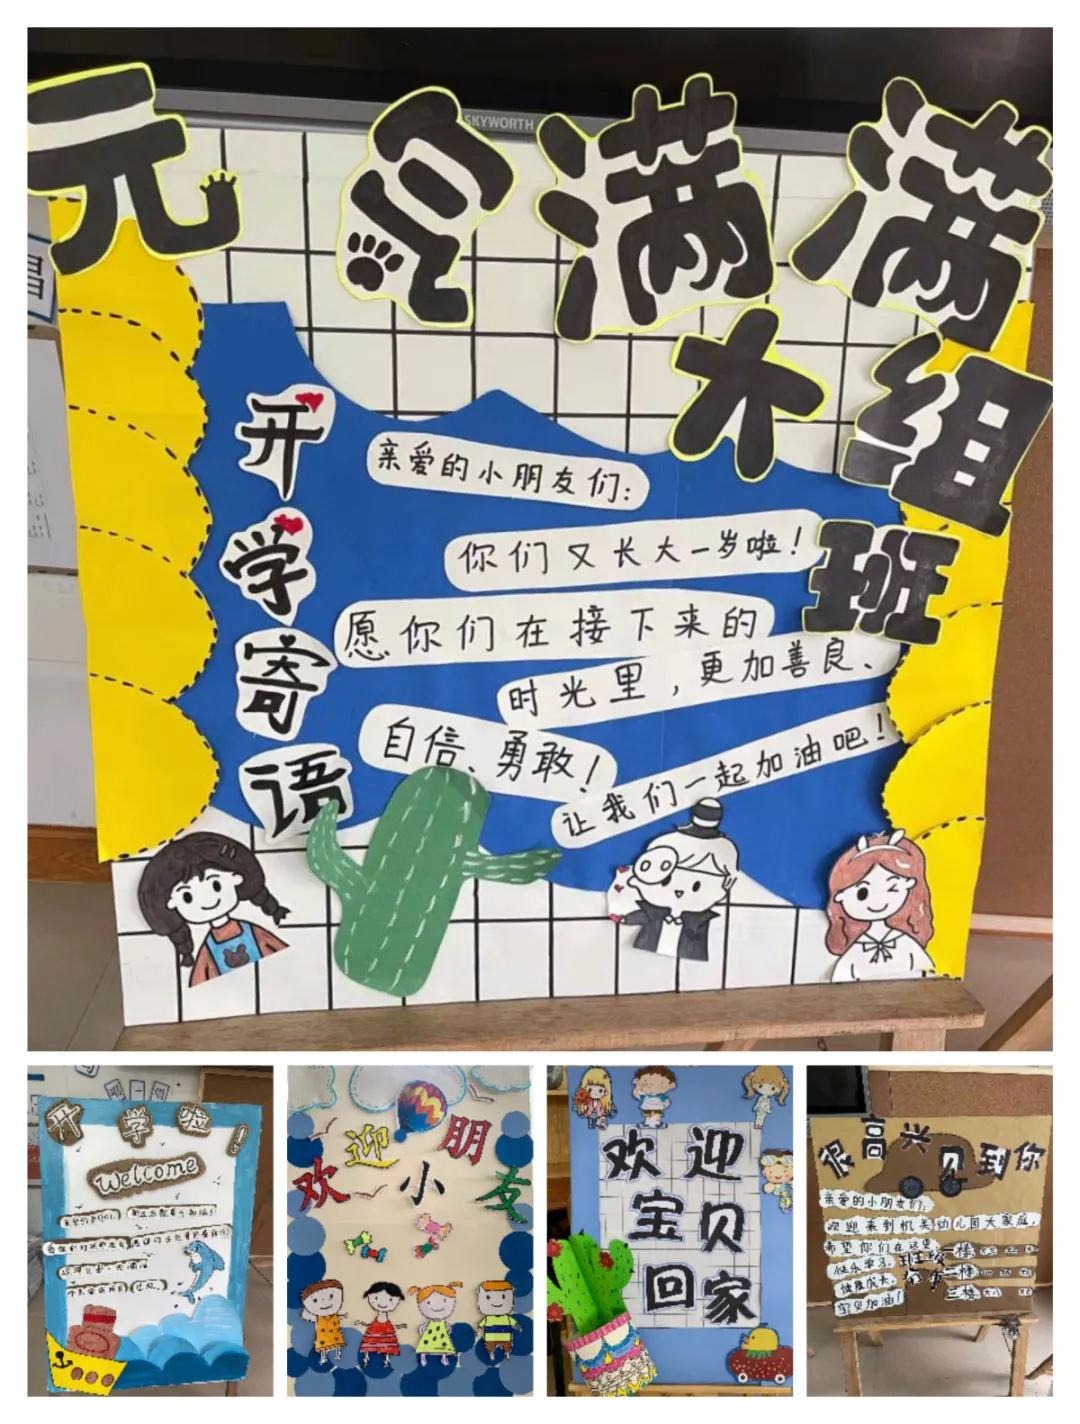 SKYWORTH
元气满满
大组班
开学寄语
亲爱的小朋友们:
你们又长大一岁啦!
愿你们在接下来的
时光里,更加善良、
自信、勇敢!
让我们一起加油吧!
开学啦!
Welcome
欢迎小朋友
欢迎
宝贝
回家
很高兴见到你
亲爱的小朋友们:
欢迎来到机关幼儿园大家庭,
希望你们在这里
快乐学习,
健康成长,
宝贝加油!
一楼
二楼
三楼